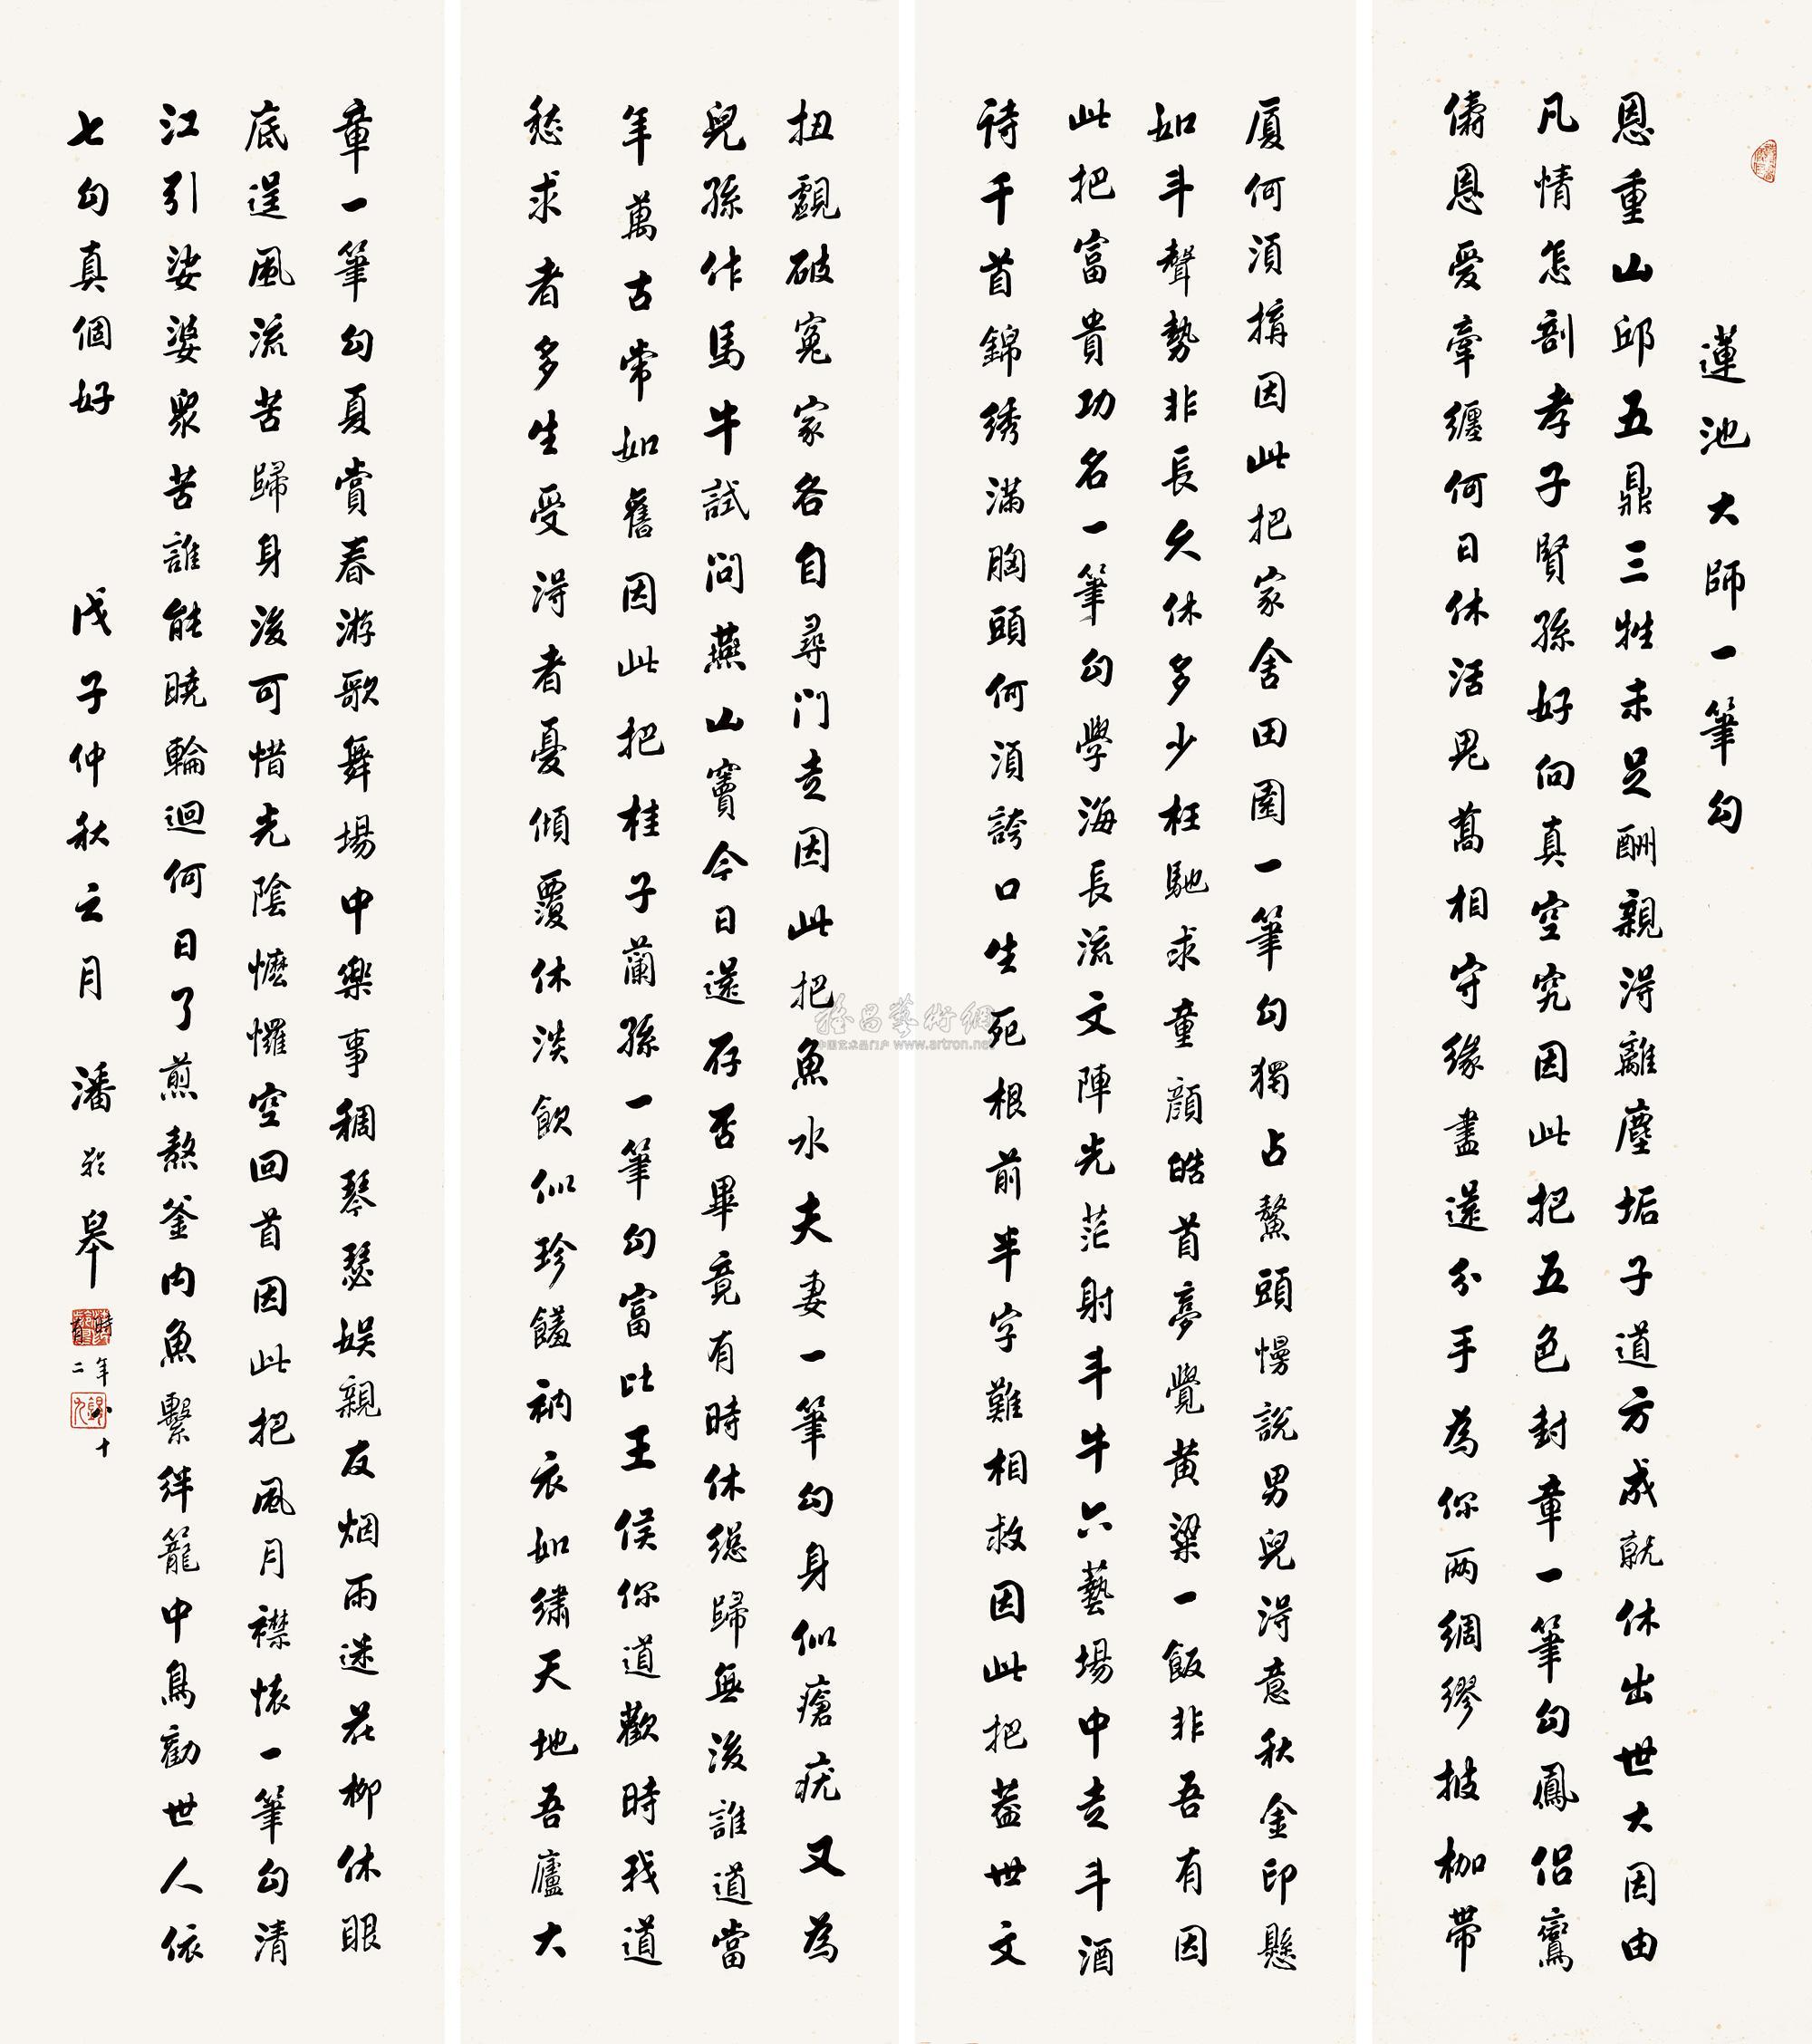 蓮池大師一筆勾
恩重山邱五鼎三牲未足酬親得離塵垢子道方成就休出世大因由
凡情怎剖孝子賢孫好向真空究因此把五色封章一筆勾鳳侶鸞
儔恩愛牽纏何日休活鬼喬相守緣盡還分手為你两綢繆披枷帶
厦何須搆因此把家舍田園一筆勾獨占鰲頭慢說男兒得意秋金印懸
如斗聲勢非長久休多少枉馳求童顏皓首夢覺黃粱一飯非吾有因
此把富貴功名一筆勾學海長流文陣光茫射斗牛六藝場中走斗酒
詩千首錦绣滿胸頭何須誇口生死根前半字難相救因此把蓋世文
扭覷破寃家各自尋門走因此把魚水夫妻一筆勾身似瘡疣又為
兒孫作馬牛試問燕山竇今日還存否畢竟有時休總歸無後誰道當
年萬古常如舊因此把桂子蘭孫一筆勾富比王侯你道歡時我道
愁求者多生受得者憂傾覆休淡飲似珍饈衲衣如繡天地吾廬大
章一筆勾夏賞春游歌舞場中樂事稠琴瑟娛親友烟雨迷花柳休眼
底逞風流苦歸身後可惜光陰懡㦬空回首因此把風月襟懷一筆勾清
江引娑婆眾苦誰能曉輪迴何日了煎熬釜內魚繫絆籠中鳥勸世人依
七勾真個好 戊子仲秋之月 潘齡皋
時年八十有二
雅昌藝術網
中国艺术品门户 www.artron.net